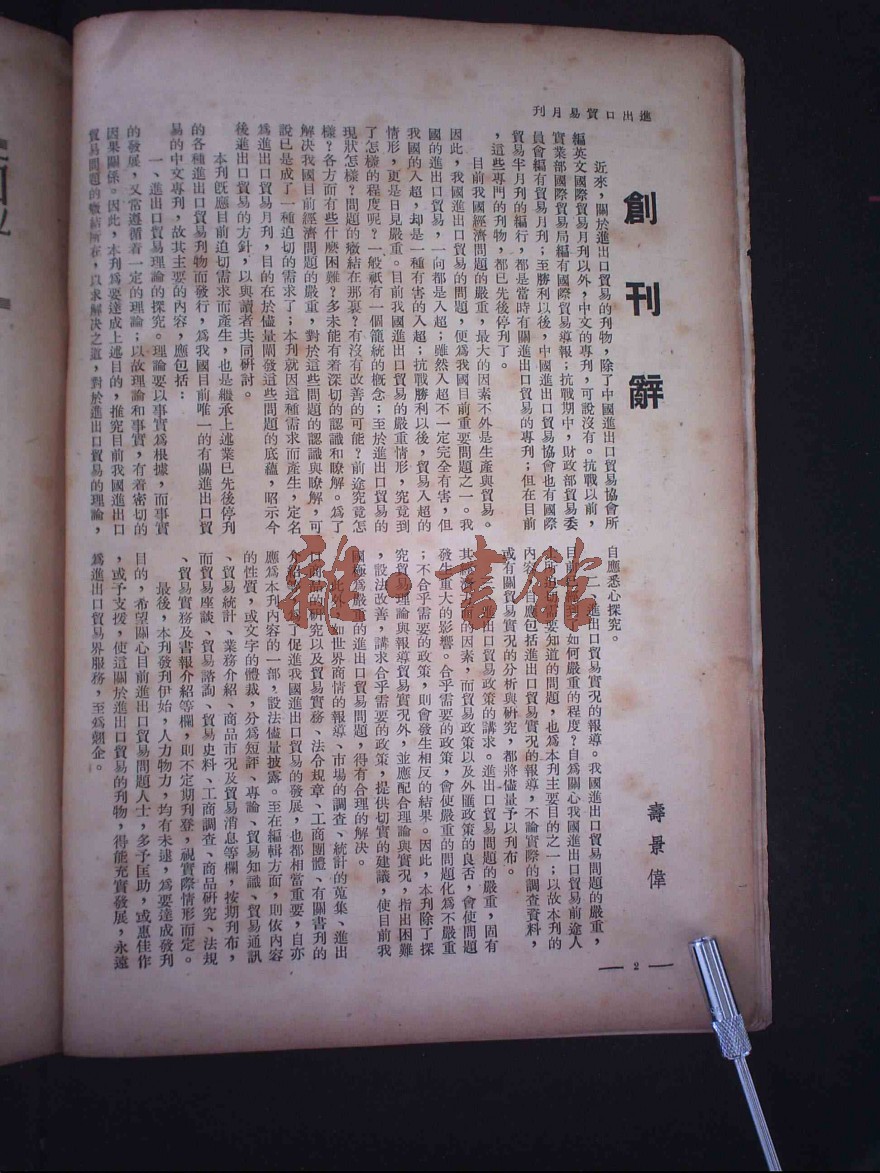 進出口貿易月刊
創刊辭
壽景偉
近來，關於進出口貿易的刊物，除了中國進出口貿易協會所
編英文國際貿易月刊以外，中文的專刊，可說沒有。抗戰以前，
實業部國際貿易局編有國際貿易導報；抗戰期中，財政部貿易委
員會編有貿易月刊；至勝利以後，中國進出口貿易協會也有國際
貿易半月刊的編行，都是當時有關進出口貿易的專刊；但在目前
，這些專門的刊物，都已先後停刊了。
目前我國經濟問題的嚴重，最大的因素不外是生產與貿易。
因此，我國進出口貿易的問題，便為我國目前重要問題之一。我
國的進出口貿易，一向都是入超；雖然入超不一定完全有害，但
我國的入超，却是一種有害的入超；抗戰勝利以後，貿易入超的
情形，更是日見嚴重。目前我國進出口貿易的嚴重情形，究竟到
了怎樣的程度呢？一般祇有一個籠統的概念；至於進出口貿易的
現狀怎樣？問題的癥結在那裏？有沒有改善的可能？前途究竟怎
樣？各方面有些什麼困難？多未能有着深切的認識和瞭解。為了
解決我國目前經濟問題的嚴重，對於這些問題的認識與瞭解，可
說已是成了一種迫切的需求了；本刊就因這種需求而產生，定名
為進出口貿易月刊，目的在於儘量闡發這些問題的底蘊，昭示今
後進出口貿易的方針，以與讀者共同研討。
本刊旣應目前迫切需求而產生，也是繼承上述業已先後停刊
的各種進出口貿易刊物而發行，為我國目前唯一的有關進出口貿
易的中文專刊，故其主要的內容，應包括：
一、進出口貿易理論的探究。理論要以事實為根據，而事實
的發展，又當遵循着一定的理論；以故理論和事實，有着密切的
因果關係。因此，本刊為要達成上述目的，推究目前我國進出口
貿易問題的癥結所在，以求解決之道，對於進出口貿易的理論，
自應悉心探究。
二、進出口貿易實況的報導。我國進出口貿易問題的嚴重，
目前已到如何嚴重的程度？自為關心我國進出口貿易前途人
士所迫切需要知道的問題，也為本刊主要目的之一；以故本刊的
內容，應包括進出口貿易實況的報導，不論實際的調查資料，
或有關貿易實況的分析與研究，都將儘量予以刊布。
進出口貿易政策的講求。進出口貿易問題的嚴重，固有
其經濟上的因素，而貿易政策以及外匯政策的良否，會使問題
發生重大的影響。合乎需要的政策，會使嚴重的問題化為不嚴重
；不合乎需要的政策，則會發生相反的結果。因此，本刊除了探
究貿易理論與報導貿易實況外，並應配合理論與實況，指出困難
，設法改善，講求合乎需要的政策，提供切實的建議，使目前我
國極為嚴重的進出口貿易問題，得有合理的解決。
此外，如世界商情的報導、市場的調查、統計的蒐集、進出
口商品的研究以及貿易實務、法令規章、工商團體、有關書刊的
介紹等，為了促進我國進出口貿易的發展，也都相當重要，自亦
應為本刊內容的一部，設法儘量披露。至在編輯方面，則依內容
的性質，或文字的體裁，分為短評、專論、貿易知識、貿易通訊
、貿易統計、業務介紹、商品市況及貿易消息等欄，按期刊布，
而貿易座談、貿易諮詢、貿易史料、工商調查、商品研究、法規
、貿易實務及書報介紹等欄，則不定期刊登，視實際情形而定。
最後，本刊發刊伊始，人力物力，均有未逮，為要達成發刊
目的，希望關心目前進出口貿易問題人士，多予匡助，或惠佳作
，或予支援，使這關於進出口貿易的刊物，得能充實發展，永遠
為進出口貿易界服務，至為翹企。
— 2 —
雅·書館